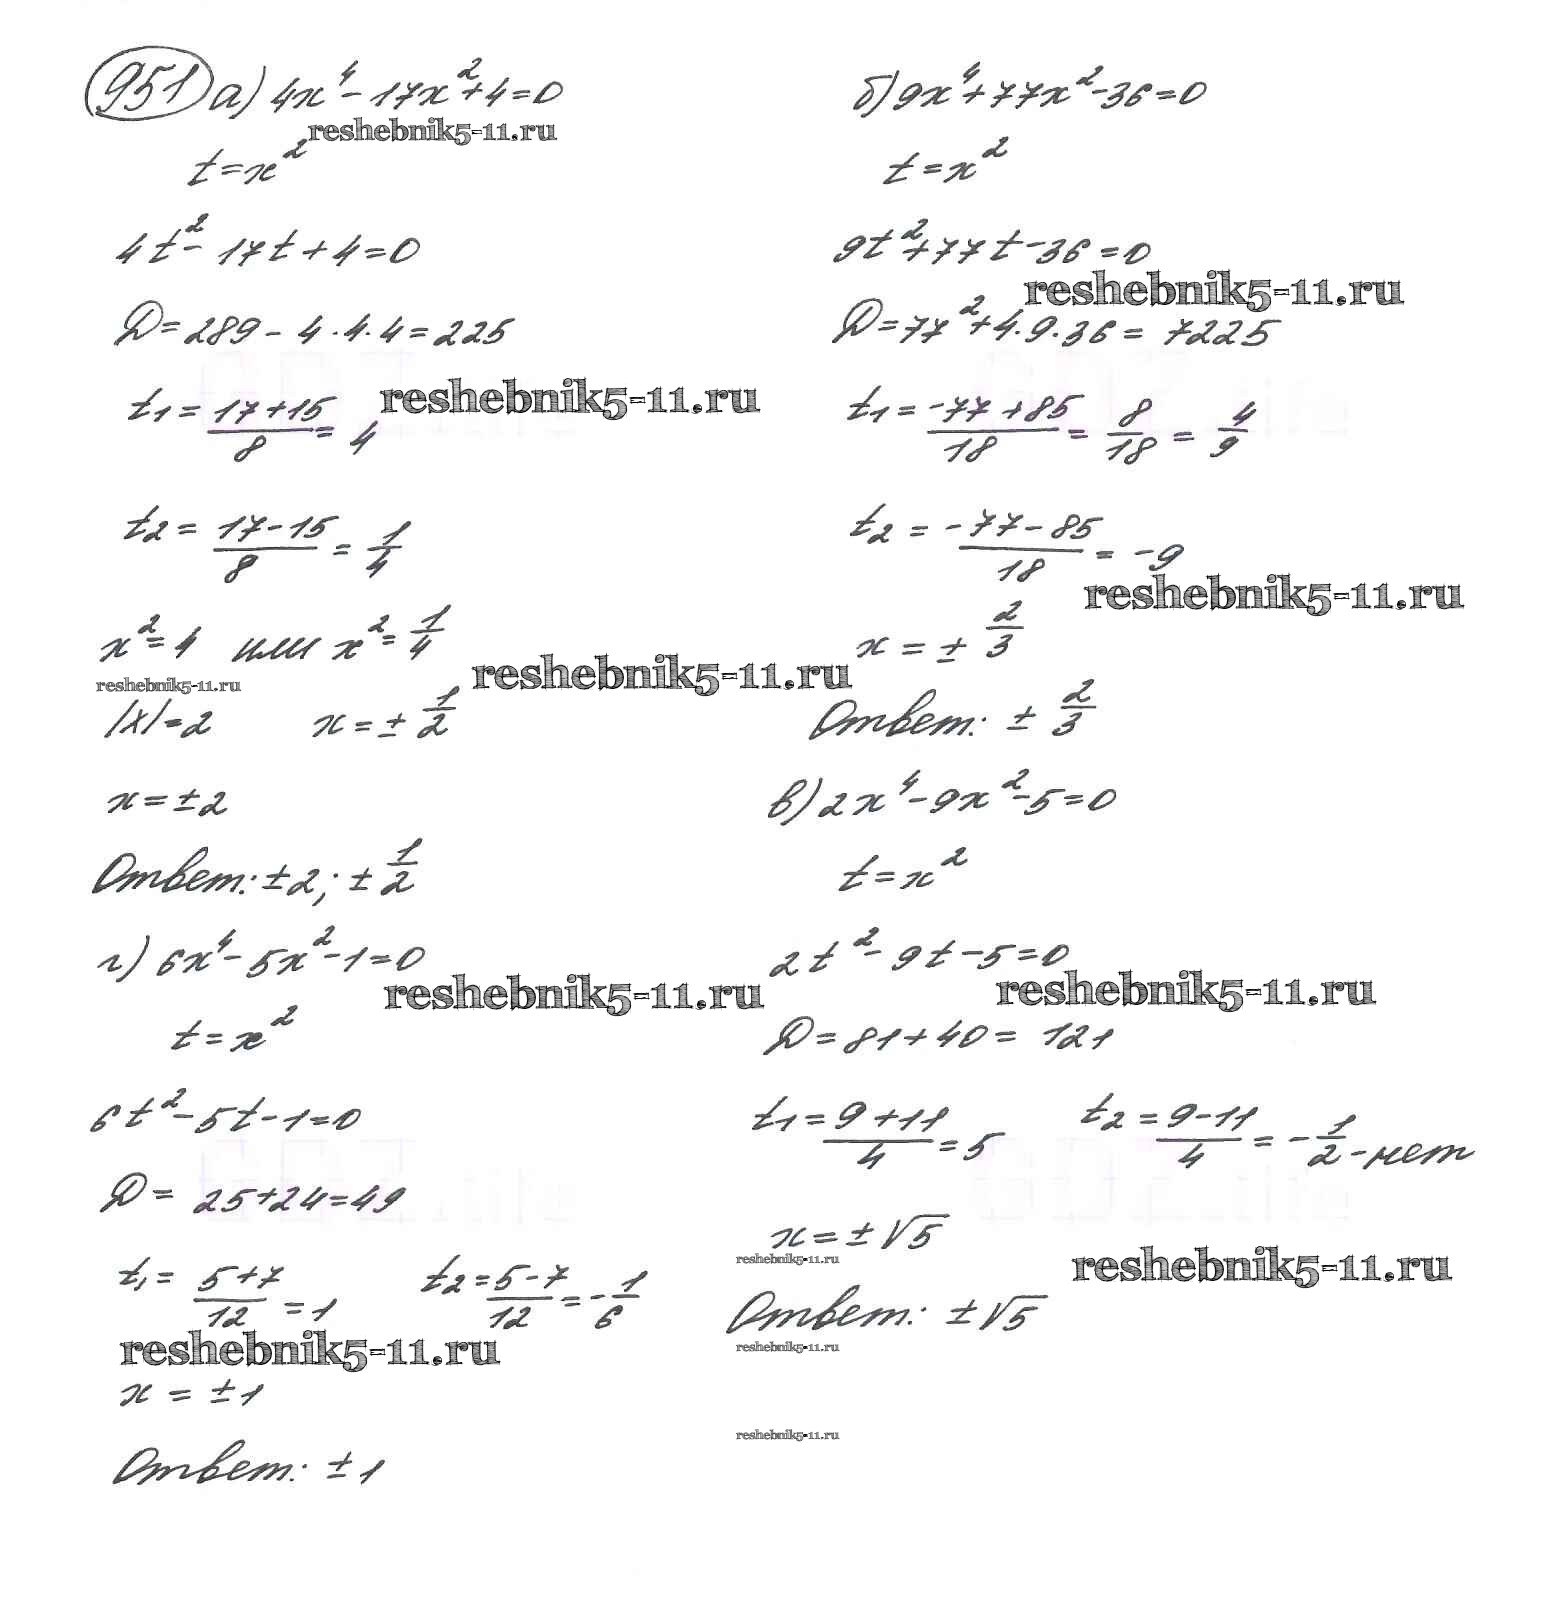 951 а) 4x⁴ - 17x² + 4 = 0
reshebnik5-11.ru
t = x²
4t² - 17t + 4 = 0
D = 289 - 4·4·4 = 225
t₁ = (17+15)/8 = 4
reshebnik5-11.ru
t₂ = (17-15)/8 = 1/4
x² = 4 или x² = 1/4
reshebnik5-11.ru
reshebnik5-11.ru
|x| = 2 x = ± 1/2
x = ±2
Ответ: ±2; ± 1/2
г) 6x⁴ - 5x² - 1 = 0
reshebnik5-11.ru
t = x²
6t² - 5t - 1 = 0
D = 25+24 = 49
t₁ = (5+7)/12 = 1 t₂ = (5-7)/12 = -1/6
reshebnik5-11.ru
x = ±1
Ответ: ±1
б) 9x⁴ + 77x² - 36 = 0
t = x²
9t² + 77t - 36 = 0
reshebnik5-11.ru
D = 77² + 4·9·36 = 7225
t₁ = (-77+85)/18 = 8/18 = 4/9
t₂ = (-77-85)/18 = -9
reshebnik5-11.ru
x = ± 2/3
Ответ: ± 2/3
в) 2x⁴ - 9x² - 5 = 0
t = x²
2t² - 9t - 5 = 0
reshebnik5-11.ru
D = 81+40 = 121
t₁ = (9+11)/4 = 5 t₂ = (9-11)/4 = -1/2 - нет
x = ±√5
reshebnik5-11.ru
reshebnik5-11.ru
Ответ: ±√5
reshebnik5-11.ru
reshebnik5-11.ru